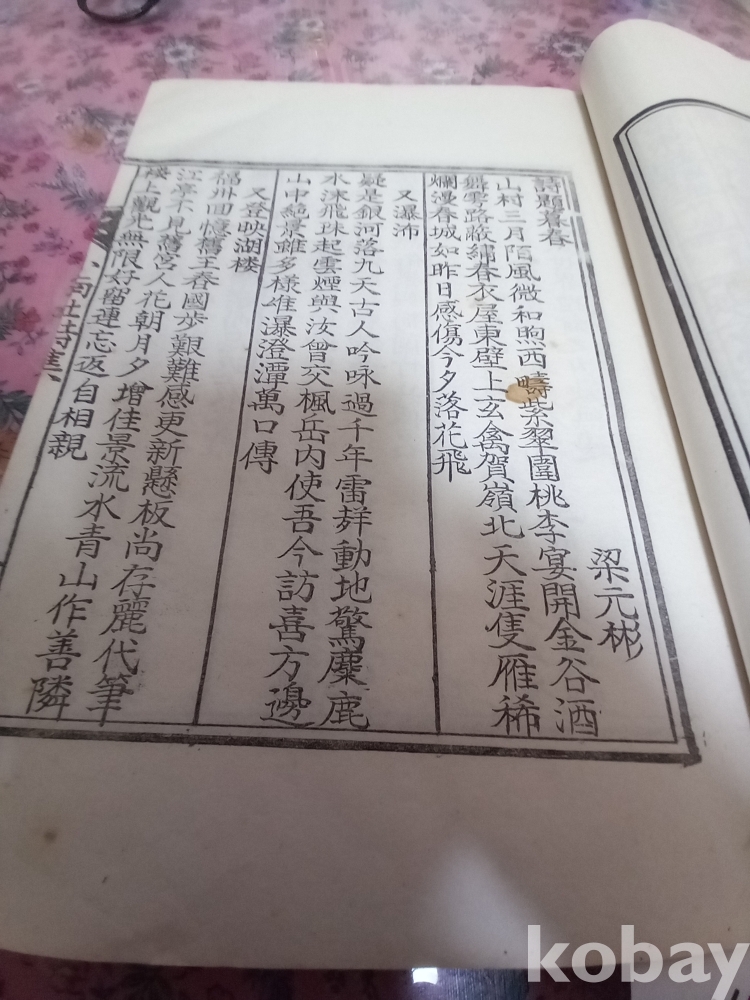 詩題暮春
梁元彬
山村三月陌風微和煦西疇紫翠圍桃李宴開金谷酒
雲路蹴繡春衣屋東壁上玄禽賀嶺北天涯隻雁稀
爛漫春城如昨日感傷今夕落花飛
又瀑沛
疑是銀河落九天古人吟咏過千年雷動地驚麋鹿
水沫飛珠起雲煙與汝曾交楓岳內使吾今訪喜方邊
山中絶景雖多樣雄瀑澄潭萬口傳
又登映湖楼
福州回憶舊王春國步艱難感更新懸板尚存麗代筆
江亭不見舊宮人花朝月夕增佳景流水青山作善隣
楼上觀光無限好留連忘返自相親
kobay